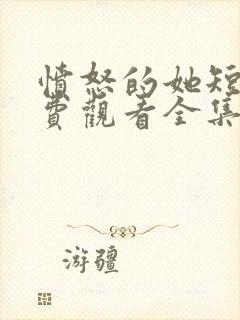 憤怒的她短
費觀看全集
游疆